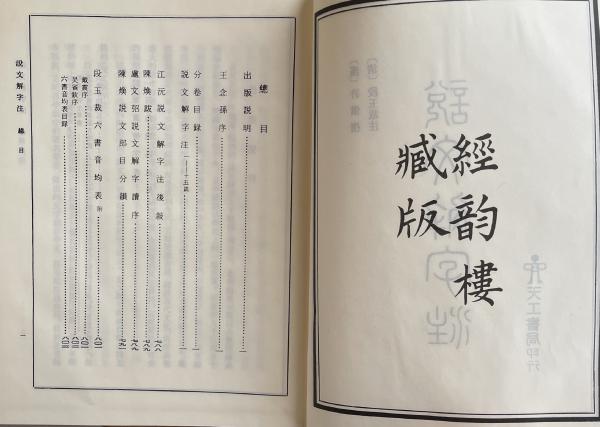 經韵樓
藏版
總目
出版說明……一
王念孫序……一
分卷目錄……一
說文解字注 一——十五篇……一
江沅說文解字注後敍……七八八
陳煥跋……七八九
盧文弨說文解字讀序……七八九
陳煥說文部目分韻……七九一
段玉裁六書音均表 附……八〇一
戴震序……八〇一
吳省欽序……八〇二
六書音均表目錄……八〇三
說文解字注 總目 一